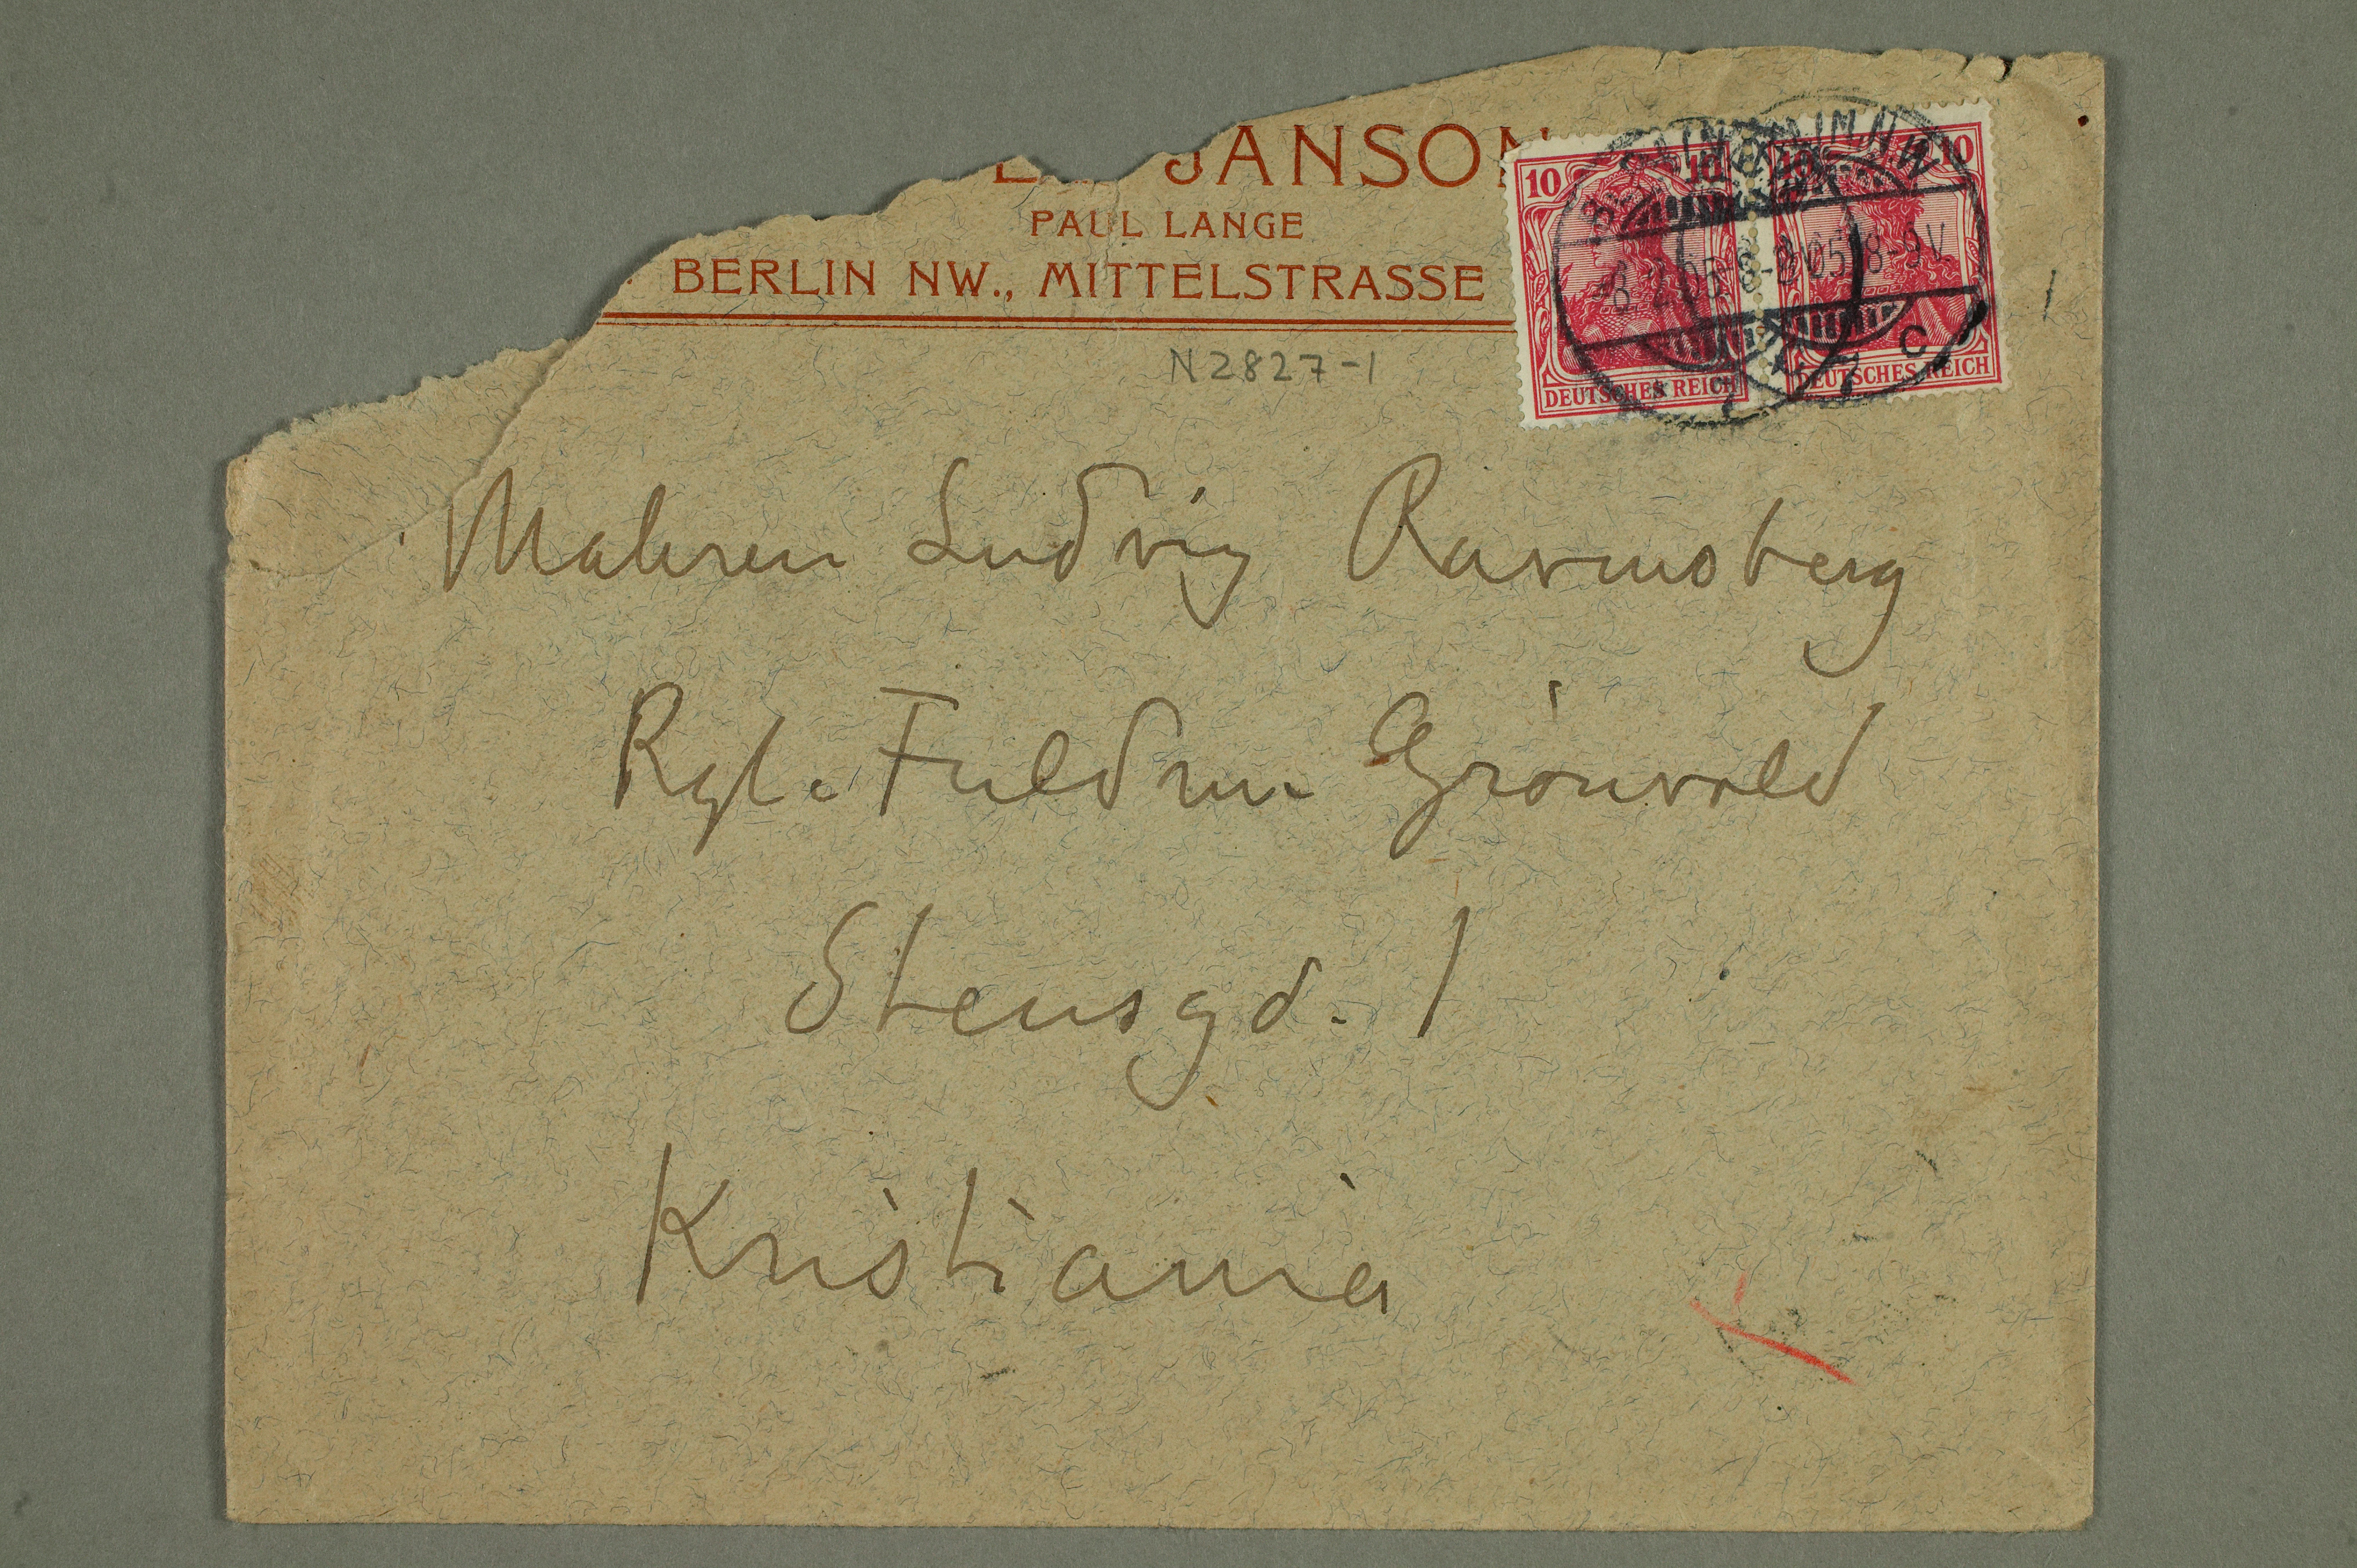 JANSON
PAUL LANGE
BERLIN NW., MITTELSTRASSE
10 10 10 10
8.2.05 8-9V.
DEUTSCHES REICH DEUTSCHES REICH
N2827-1
Maleren Ludvig Ravensberg
Rgl. Fuldm. Grönvold
Stensgd. 1
Kristiania